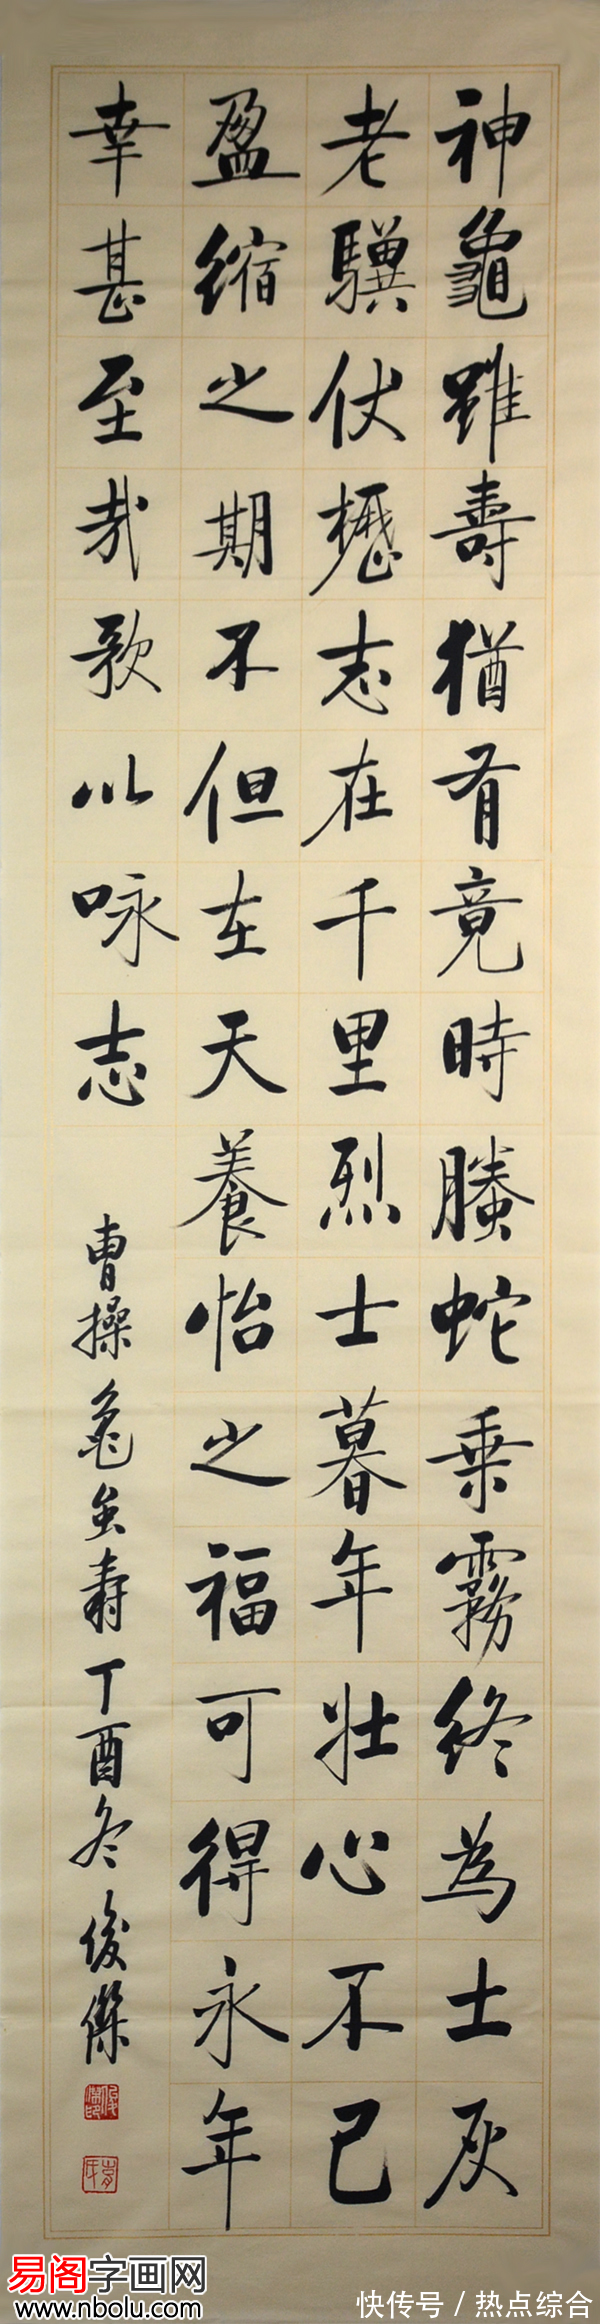 神龜雖壽猶有竟時騰蛇乗霧終為士灰
老驥伏櫪志在千里烈士暮年壯心不已
盈縮之期不但在天養怡之福可得永年
幸甚至哉歌以咏志
曹操龜虽寿丁酉冬俊傑
易阁字画网
www.nbolu.com
快传号 / 热点综合